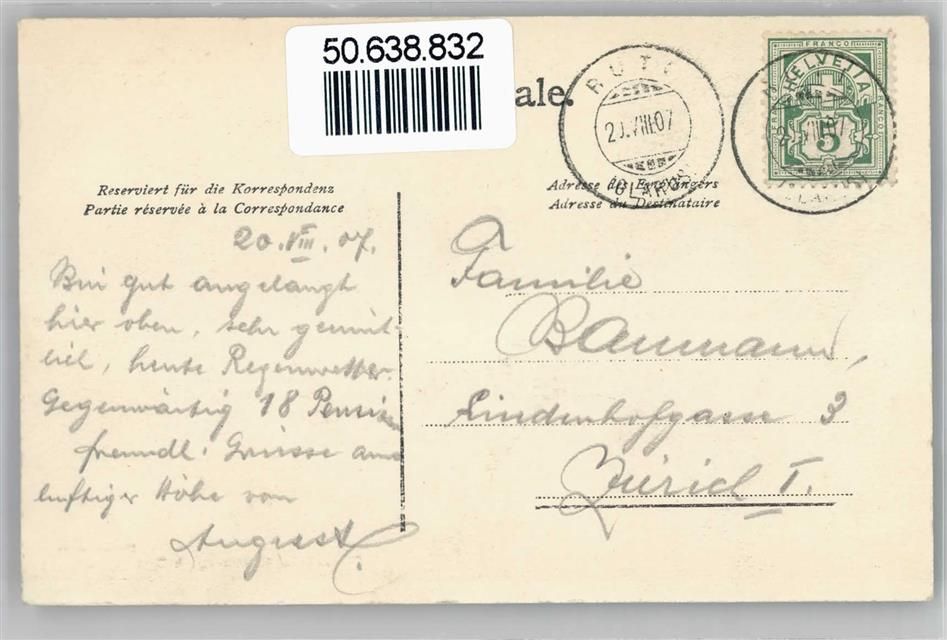 50.638.832
ale.
RÜTI
20.VIII.07
(GLARUS)
HELVETIA
FRANCO
5
Reserviert für die Korrespondenz
Partie réservée à la Correspondance
Adresse des Empfängers
Adresse du Destinataire
20. VIII. 07.
Bin gut angelangt
hier oben, sehr gemüt-
lich, heute Regenwetter.
Gegenwärtig 18 Pensio
freundl. Grüsse aus
luftiger Höhe von
August
Familie
Baumann,
Lindenhofgasse 3
Zürich I.